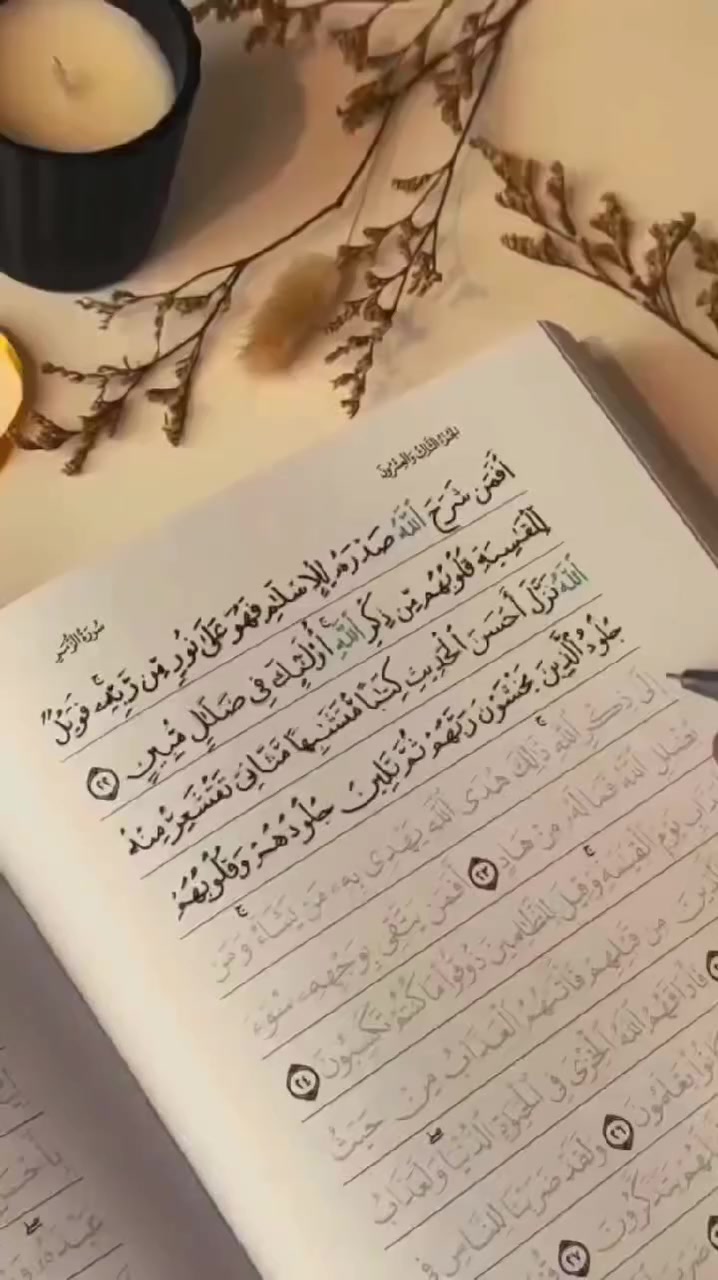 الجزء الثالث والعشرون
سورة الزمر
أَفَمَن شَرَحَ ٱللَّهُ صَدْرَهُۥ لِلْإِسْلَٰمِ فَهُوَ عَلَىٰ نُورٍ مِّن رَّبِّهِۦ ۚ فَوَيْلٌ
لِّلْقَٰسِيَةِ قُلُوبُهُم مِّن ذِكْرِ ٱللَّهِ ۚ أُو۟لَٰٓئِكَ فِى ضَلَٰلٍ مُّبِينٍ ٢٢
ٱللَّهُ نَزَّلَ أَحْسَنَ ٱلْحَدِيثِ كِتَٰبًا مُّتَشَٰبِهًا مَّثَانِىَ تَقْشَعِرُّ مِنْهُ
جُلُودُ ٱلَّذِينَ يَخْشَوْنَ رَبَّهُمْ ثُمَّ تَلِينُ جُلُودُهُمْ وَقُلُوبُهُمْ
إِلَىٰ ذِكْرِ ٱللَّهِ ۚ ذَٰلِكَ هُدَى ٱللَّهِ يَهْدِى بِهِۦ مَن يَشَآءُ ۚ وَمَن
يُضْلِلِ ٱللَّهُ فَمَا لَهُۥ مِنْ هَادٍ ٢٣ أَفَمَن يَتَّقِى بِوَجْهِهِۦ سُوٓءَ
ٱلْعَذَابِ يَوْمَ ٱلْقِيَٰمَةِ ۚ وَقِيلَ لِلظَّٰلِمِينَ ذُوقُوا۟ مَا كُنتُمْ تَكْسِبُونَ ٢٤
مِن قَبْلِهِمْ فَأَتَىٰهُمُ ٱلْعَذَابُ مِنْ حَيْثُ
فَأَذَاقَهُمُ ٱللَّهُ ٱلْخِزْىَ فِى ٱلْحَيَوٰةِ ٱلدُّنْيَا ۖ وَلَعَذَابُ
يَعْلَمُونَ ٢٦ وَلَقَدْ ضَرَبْنَا لِلنَّاسِ فِى
يَتَذَكَّرُونَ ٢٧